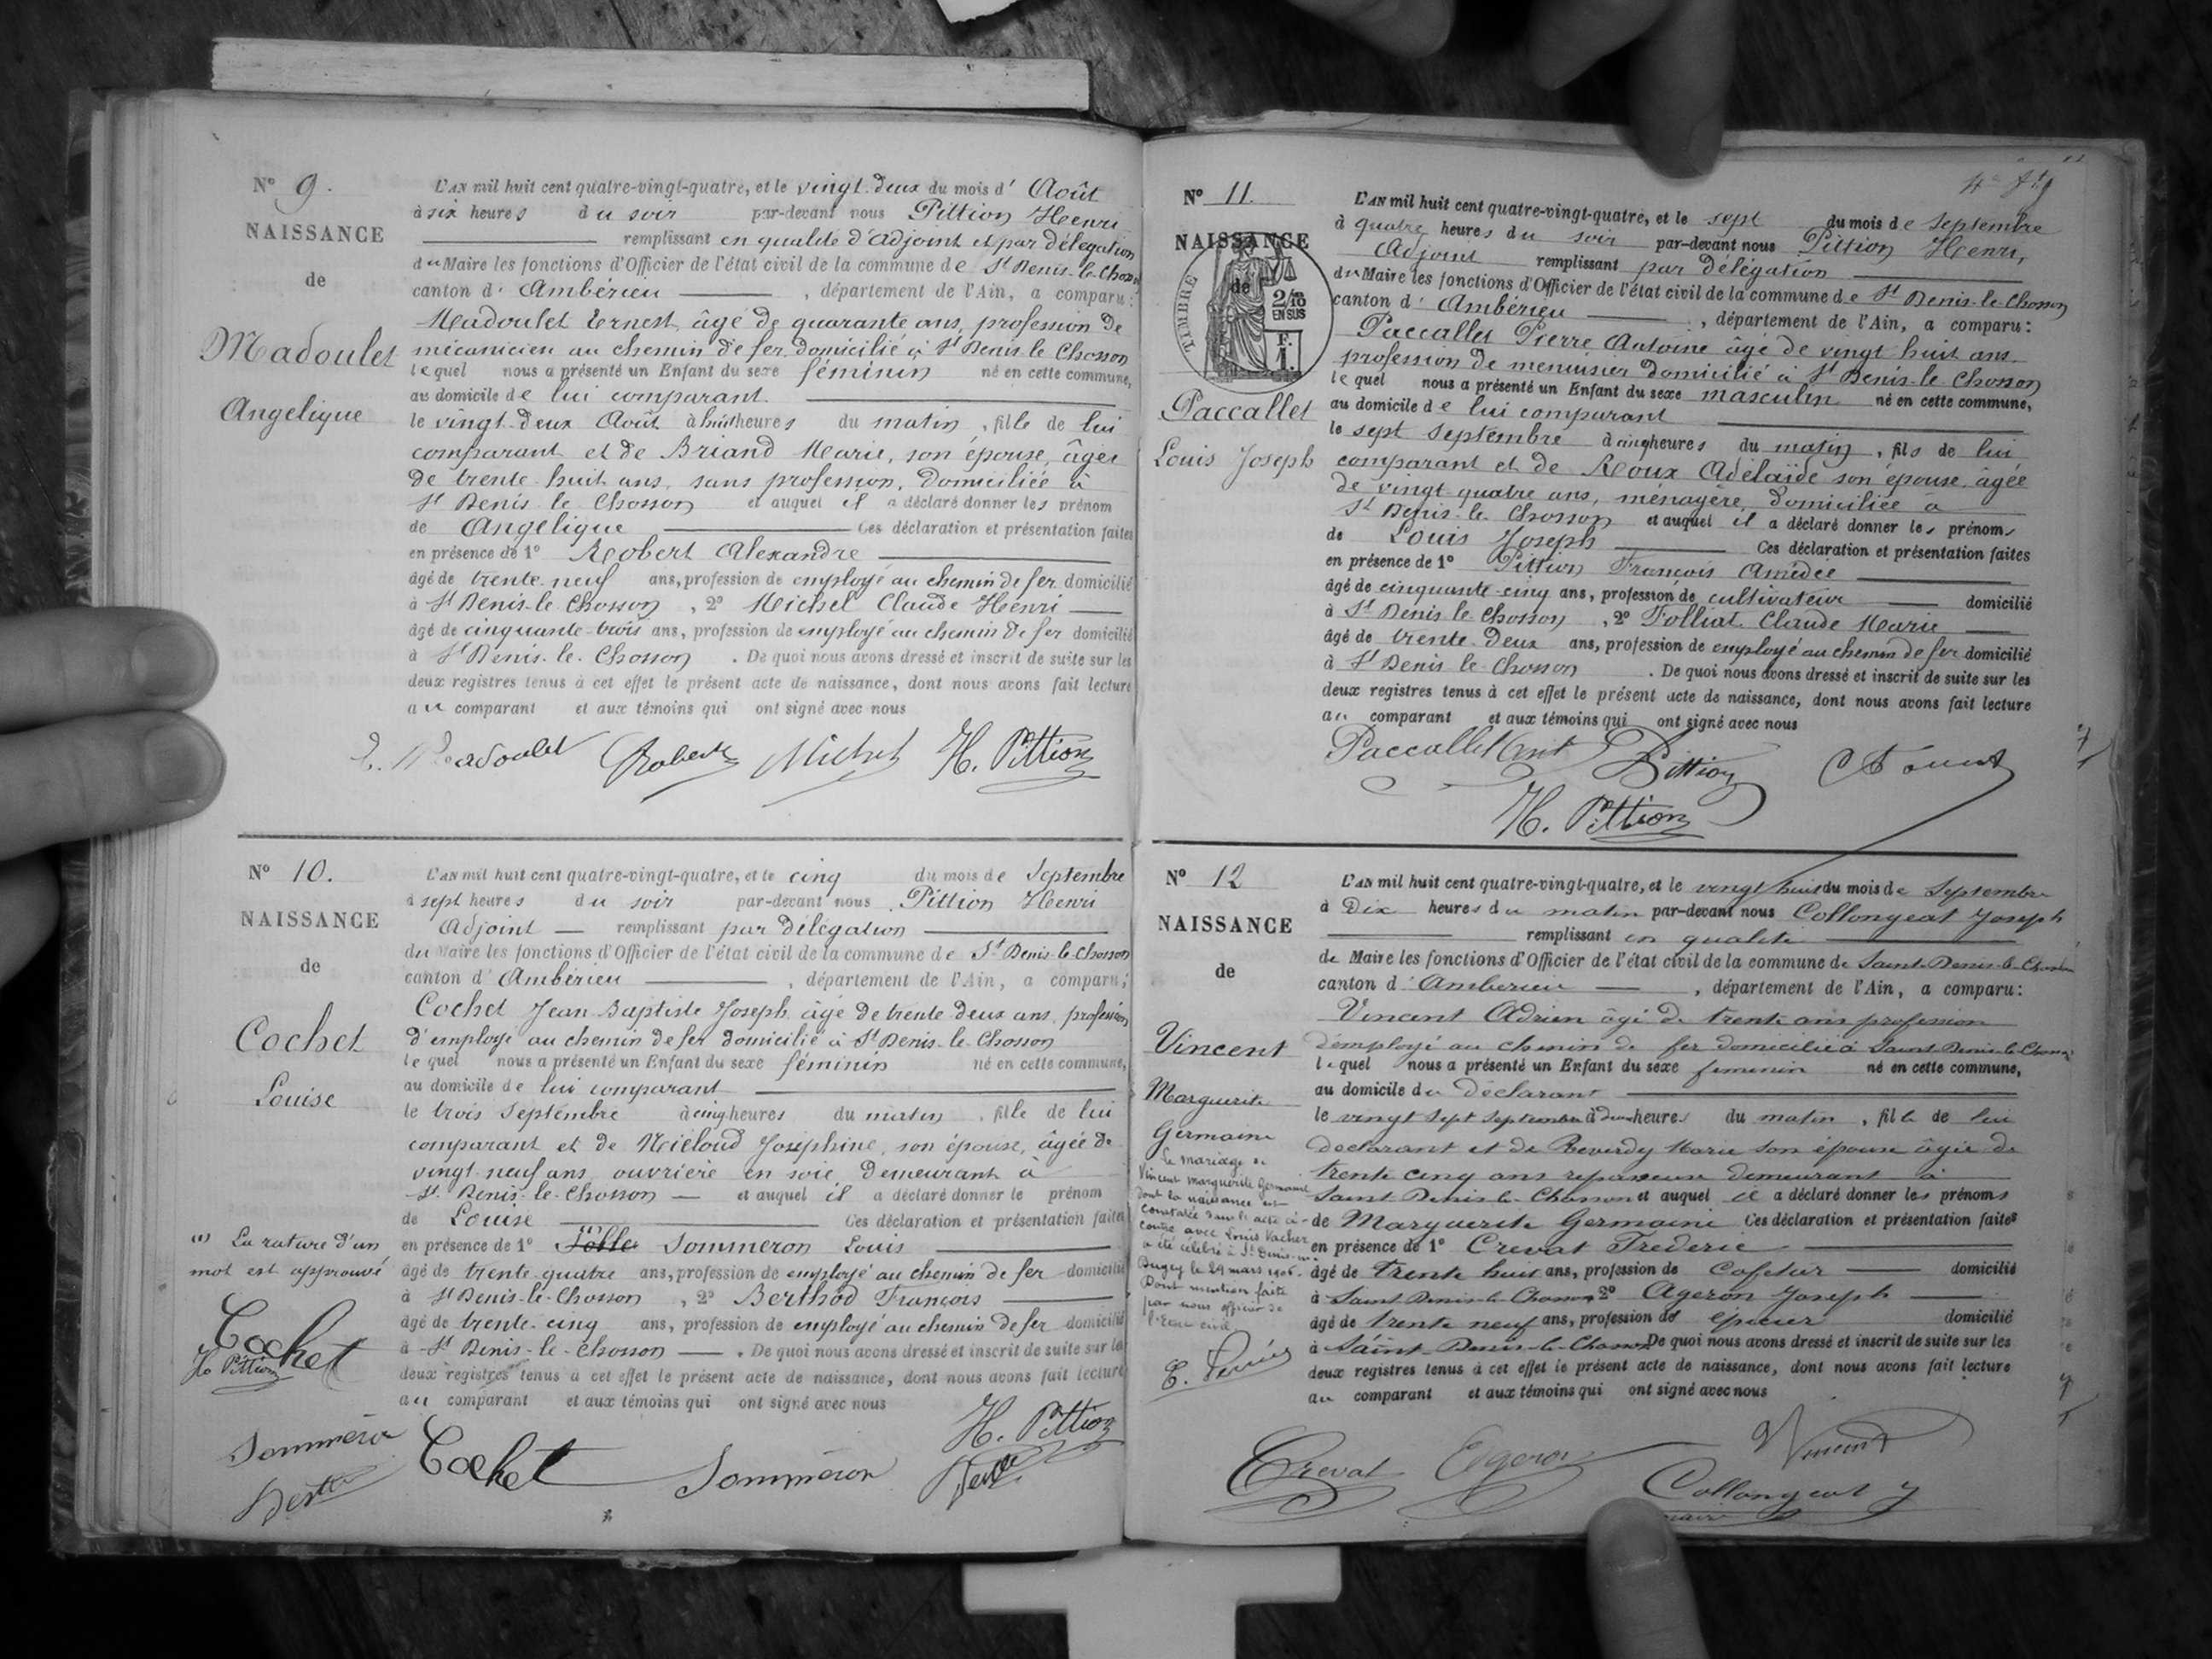 N° 9.
NAISSANCE
de
Madoulet
Angelique
L'AN mil huit cent quatre-vingt-quatre, et le vingt-deux du mois d' Août
à six heures du soir par-devant nous Pittion Henri
remplissant en qualité d'Adjoint et par délégation
du Maire les fonctions d'Officier de l'état civil de la commune de St Denis-le-Chosson
canton d' Ambérieu , département de l'Ain, a comparu:
Madoulet Ernest, âgé de quarante ans, profession de
mécanicien au chemin de fer, domicilié à St Denis le Chosson
lequel nous a présenté un Enfant du sexe féminin né en cette commune,
au domicile de lui comparant.
le vingt-deux Août à huit heures du matin, fille de lui
comparant et de Briand Marie, son épouse, âgée
de trente-huit ans, sans profession, domiciliée à
St Denis le Chosson et auquel il a déclaré donner les prénom
de Angelique Ces déclaration et présentation faites
en présence de 1° Robert Alexandre
âgé de trente-neuf ans, profession de employé au chemin de fer domicilié
à St Denis-le-Chosson , 2° Michel Claude Henri
âgé de cinquante-trois ans, profession de employé au chemin de fer domicilié
à St Denis-le-Chosson . De quoi nous avons dressé et inscrit de suite sur les
deux registres tenus à cet effet le présent acte de naissance, dont nous avons fait lecture
au comparant et aux témoins qui ont signé avec nous
E. Madoulet Robert Michel H. Pittion
N° 10.
NAISSANCE
de
Cochet
Louise
L'AN mil huit cent quatre-vingt-quatre, et le cinq du mois de Septembre
à sept heures du soir par-devant nous Pittion Henri
Adjoint — remplissant par délégation
du Maire les fonctions d'Officier de l'état civil de la commune de St Denis-le-Chosson
canton d' Ambérieu , département de l'Ain, a comparu;
Cochet Jean-Baptiste Joseph âgé de trente-deux ans, profession
d'employé au chemin de fer domicilié à St Denis-le-Chosson
lequel nous a présenté un Enfant du sexe féminin né en cette commune,
au domicile de lui comparant
le trois Septembre à cinq heures du matin, fille de lui
comparant et de Joséphine, son épouse, âgée de
vingt-neuf ans, ouvrière en soie, demeurant à
St Denis-le-Chosson — et auquel il a déclaré donner le prénom
de Louise Ces déclaration et présentation faites
en présence de 1° Sommeron Louis
âgé de trente-quatre ans, profession de employé au chemin de fer domicilié
à St Denis-le-Chosson , 2° Berthod François
âgé de trente-cinq ans, profession de employé au chemin de fer domicilié
à St Denis-le-Chosson — . De quoi nous avons dressé et inscrit de suite sur les
deux registres tenus à cet effet le présent acte de naissance, dont nous avons fait lecture
au comparant et aux témoins qui ont signé avec nous
(1) La rature d'un
mot est approuvé
Cochet
H. Pittion
Sommeron
Cochet Sommeron H. Pittion
N° 11.
NAISSANCE
de
TIMBRE
2/10
EN SUS
F.
1.
Paccallet
Louis Joseph
L'AN mil huit cent quatre-vingt-quatre, et le sept du mois de Septembre
à quatre heures du soir par-devant nous Pittion Henri,
Adjoint remplissant par délégation
du Maire les fonctions d'Officier de l'état civil de la commune de St Denis-le-Chosson
canton d' Ambérieu , département de l'Ain, a comparu:
Paccallet Pierre Antoine âgé de vingt huit ans
profession de menuisier domicilié à St Denis-le-Chosson
lequel nous a présenté un Enfant du sexe masculin né en cette commune,
au domicile de lui comparant
le sept Septembre à cinq heures du matin, fils de lui
comparant et de Roux Adélaïde son épouse, âgée
de vingt-quatre ans, ménagère, domiciliée à
St Denis-le-Chosson et auquel il a déclaré donner les prénoms
de Louis Joseph Ces déclaration et présentation faites
en présence de 1° Pittion François Amédée
âgé de cinquante-cinq ans, profession de cultivateur domicilié
à St Denis le Chosson , 2° Folliat Claude Marie
âgé de trente-deux ans, profession de employé au chemin de fer domicilié
à St Denis le Chosson . De quoi nous avons dressé et inscrit de suite sur les
deux registres tenus à cet effet le présent acte de naissance, dont nous avons fait lecture
au comparant et aux témoins qui ont signé avec nous
Paccallet Ant Pittion
H. Pittion
N° 12
NAISSANCE
de
Vincent
Marguerite
Germaine
Le mariage de
Vincent Marguerite Germaine
dont la naissance est
constatée dans l'acte ci-
contre avec Louis Vacher
a été célébré à St Denis-en-
Bugey le 29 mars 1906.
Dont mention faite
par nous officier de
l'état civil
L'AN mil huit cent quatre-vingt-quatre, et le vingt huit du mois de Septembre
à Dix heures du matin par-devant nous Collongeat Joseph
remplissant en qualité
de Maire les fonctions d'Officier de l'état civil de la commune de Saint-Denis-le-Chosson
canton d' Ambérieu — , département de l'Ain, a comparu:
Vincent Adrien âgé de trente ans profession
d'employé au chemin de fer domicilié à Saint-Denis-le-Chosson
lequel nous a présenté un Enfant du sexe féminin né en cette commune,
au domicile du déclarant
le vingt sept Septembre à heures du matin, fille de lui
déclarant et de Reverdy Marie son épouse âgée de
trente cinq ans repasseuse demeurant à
Saint Denis-le-Chosson et auquel il a déclaré donner les prénoms
de Marguerite Germaine Ces déclaration et présentation faites
en présence de 1° Crevat Frederic
âgé de trente huit ans, profession de Cafetier domicilié
à Saint-Denis-le-Chosson 2° Ageron Joseph
âgé de trente neuf ans, profession de épicier domicilié
à Saint-Denis-le-Chosson De quoi nous avons dressé et inscrit de suite sur les
deux registres tenus à cet effet le présent acte de naissance, dont nous avons fait lecture
au comparant et aux témoins qui ont signé avec nous
Crevat Ageron Vincent
Collongeat J
maire